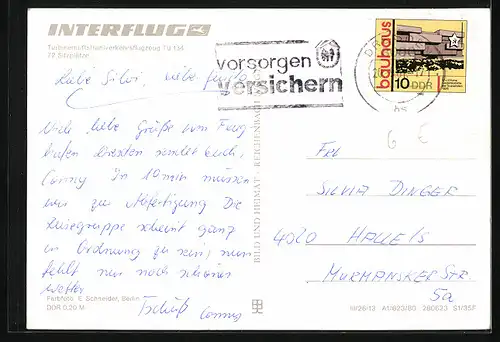 INTERFLUG
Turbinenluftstrahlverkehrsflugzeug TU 134
72 Sitzplätze
vorsorgen
versichern
bauhaus
10 DDR
Liebe Silvi, liebe
Viele liebe Grüße vom Flug-
hafen Dresden sendet Euch,
Conny In 10 min müssen
wir zur Abfertigung Die
Reisegruppe scheint ganz
in Ordnung zu sein, nun
fehlt nur noch schönes
Wetter
Tschüß Conny
6 E
Frl
SILVIA DINGER
4020 HALLE/S
MURMANSKER STR.
5a
BILD UND HEIMAT · REICHENBACH
Farbfoto: E. Schneider, Berlin
DDR 0,20 M
III/26/13 A1/623/80 280623 S1/35F